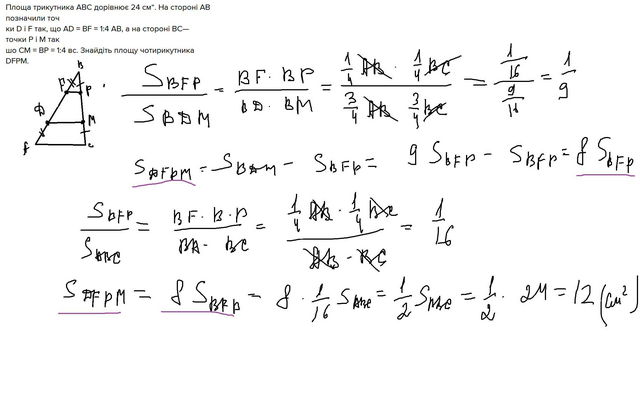 Площа трикутника ABC дорівнює 24 см". На стороні AB
позначили точ
ки D і F так, що AD = BF = 1:4 AB, а на стороні BC—
точки P і M так
шо CM = BP = 1:4 вс. Знайдіть площу чотирикутника
DFPM.
B
F P
D M
C
S_BFP / S_BDM = BF · BP / BD · BM = 1/4 AB · 1/4 BC / 3/4 AB 3/4 BC = 1/16 / 9/16 = 1/9
S_DFPM = S_BDM - S_BFP = 9 S_BFP - S_BFP = 8 S_BFP
S_BFP / S_ABC = BF · BP / BA · BC = 1/4 AB · 1/4 BC / AB · BC = 1/16
S_DFPM = 8 S_BFP = 8 · 1/16 S_ABC = 1/2 S_ABC = 1/2 · 24 = 12 (см²)